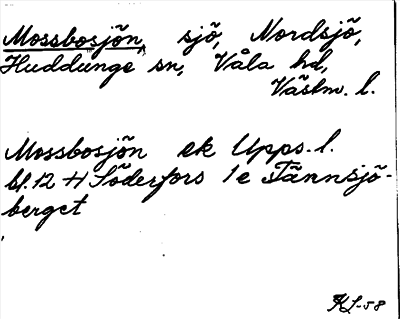 Mossbosjön, sjö, Nordsjö,
Huddunge sn, Våla hd,
Västm. l.
Mossbosjön ek Upps. l.
bl. 12 H Söderfors 1 e Tännsjö-
berget
KL-58